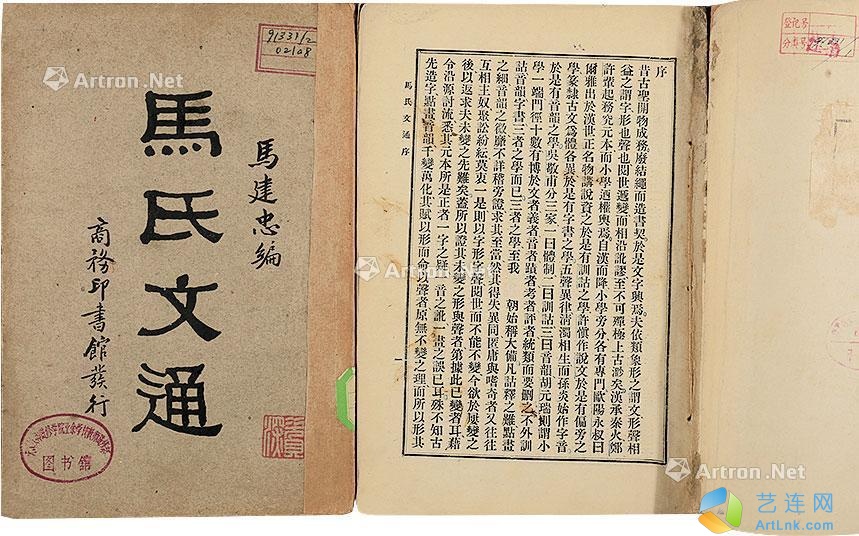 91331/2
02108
馬氏文通
馬建忠編
商務印書館發行
图书舘
Artron.Net
登記号
分类号
序
昔古聖開物成務廢結繩而造書契於是文興焉夫依類象形之謂文形聲相
益之謂字形也聲也閱世遞變而相沿訛謬至不可殫極上古渺矣漢承秦火鄭
許輩起務究元本而小學迺權輿焉自漢而降小學旁分各有專門歐陽永叔曰
爾雅出於漢世正名物講說資之於是有訓詁之學許慎作說文於是有偏旁之
學篆隸古文爲體各異於是有字書之學五聲異律淸濁相生而孫炎始作字音
於是有音韻之學吳敬甫分三家一曰體制二曰訓詁三曰音韻胡元瑞則謂小
學一端門徑十數有博於文者義者音者蹟者考者評者統類而要删之不外訓
詁音韻字書三者之學而已三者之學至我 朝始稱大備凡詁釋之難點畫
之細音韻之微靡不詳稽旁證求其至當然其得失異同匿庸與嗜奇者又往往
互相主奴聚訟紛紜莫衷一是則以字形字聲閱世而不能不變今欲於屢變之
後以返求夫未變之先難矣蓋所以證其未變之形與聲者第據此已變者耳藉
令沿源討流悉其元本所是正者一字之疑一音之訛一畫之誤已耳殊不知古
先造字點畫音韻千變萬化其賦以形而命以聲者原無不變之理而所以形其
馬氏文通序
一
Artron.Net
Artron.Net
Artron.Net
艺连网
ArtLnk.com